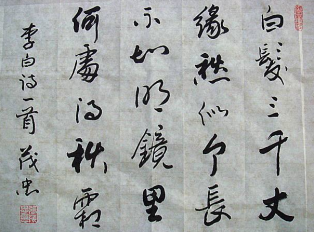 白髮三千丈
緣愁似个長
不知明鏡里
何處得秋霜
李白诗一首 茂忠